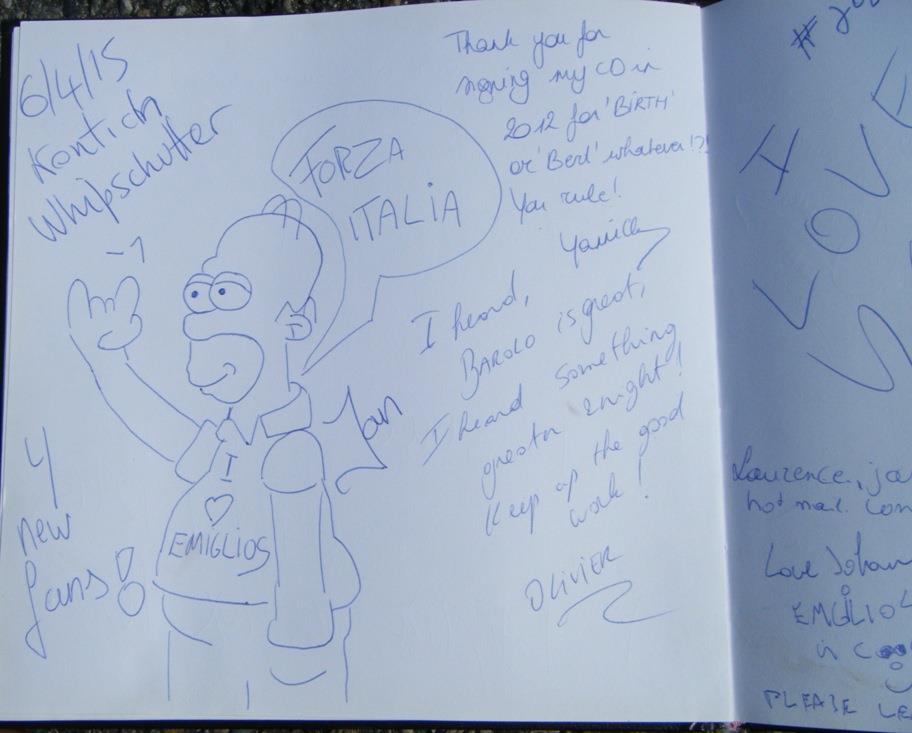 6/4/15
Kontich
Whipschutter
FORZA
ITALIA
I
♡
EMIGLIOS
Jan
4
new
fans!
Thank you for
signing my CD in
2012 for 'BIRTH'
or 'Bert' whatever!?!
You rule!
Yannick
I heard,
BAROLO is great,
I heard something
greater 2night!
Keep up the good
work!
OLIVIER
#
I
LOVE
Laurence, ja
hotmail. com
Love Johan
EMIGLIO
in
PLEASE LE